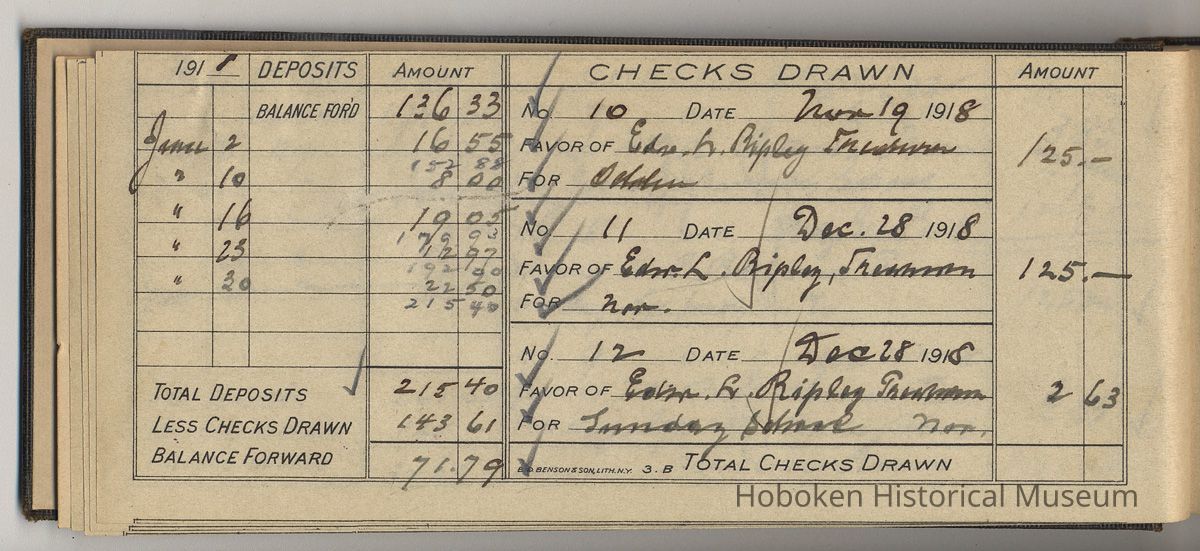 191 DEPOSITS AMOUNT CHECKS DRAWN AMOUNT
BALANCE FOR'D 126 33
June 2 16 55
152 88
" 10 8 00
" 16 19 05
179 93
" 23 12 97
192 90
" 30 22 50
215 40
TOTAL DEPOSITS 215 40
LESS CHECKS DRAWN 143 61
BALANCE FORWARD 71.79
No. 10 DATE Nov 19 1918
FAVOR OF Edw. L. Ripley Treasurer 125.—
FOR October
No. 11 DATE Dec. 28 1918
FAVOR OF Edw. L. Ripley, Treasurer 125.—
FOR Nov.
No. 12 DATE Dec 28 1918
FAVOR OF Edw. L. Ripley Treasurer 2 63
FOR Sunday School Nov.
E.D. BENSON & SON, LITH. N.Y. 3. B TOTAL CHECKS DRAWN
Hoboken Historical Museum